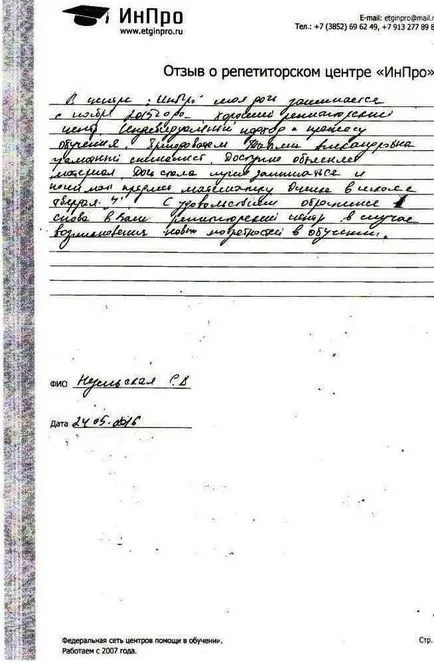 ИнПро
www.etginpro.ru
E-mail: etginpro@mail.r
Тел.: +7 (3852) 69 62 49, +7 913 277 89 8
Отзыв о репетиторском центре «ИнПро»
В центре "ИнПро" моя дочь занимается
с ноября 2015 года. Хороший репетиторский
центр. Индивидуальный подход к процессу
обучения. Преподаватель Александровна
грамотный специалист. Доступно объясняет
материал. Дочь стала лучше заниматься и
предмет математику. Оценка в школе
твердая "4". С удовольствием обратимся
снова в Ваш репетиторский центр в случае
возникновения новых потребностей в обучении.
ФИО
Дата 24.05.2016
Федеральная сеть центров помощи в обучении.
Работаем с 2007 года.
Стр.